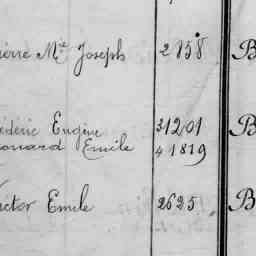 ierre Mie Joseph 2858 B
édéric Eugène 31201 B
ouard Emile 41819
ictor Emile 2625 B